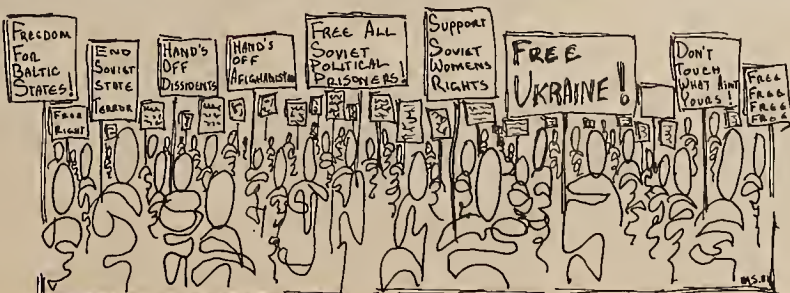 FREEDOM
FOR
BALTIC
STATES!
RIGHT
END
SOVIET
STATE
TERROR
HAND'S
OFF
DISSIDENTS
HAND'S
OFF
AFIGHANISTAN
FREE ALL
SOVIET
POLITICAL
PRISONERS!
SUPPORT
SOVIET
WOMENS
RIGHTS
FREE
UKRAINE!
DON'T
TOUCH
WHAT AINT
YOURS!
FREE
FREE
FREE
FREE